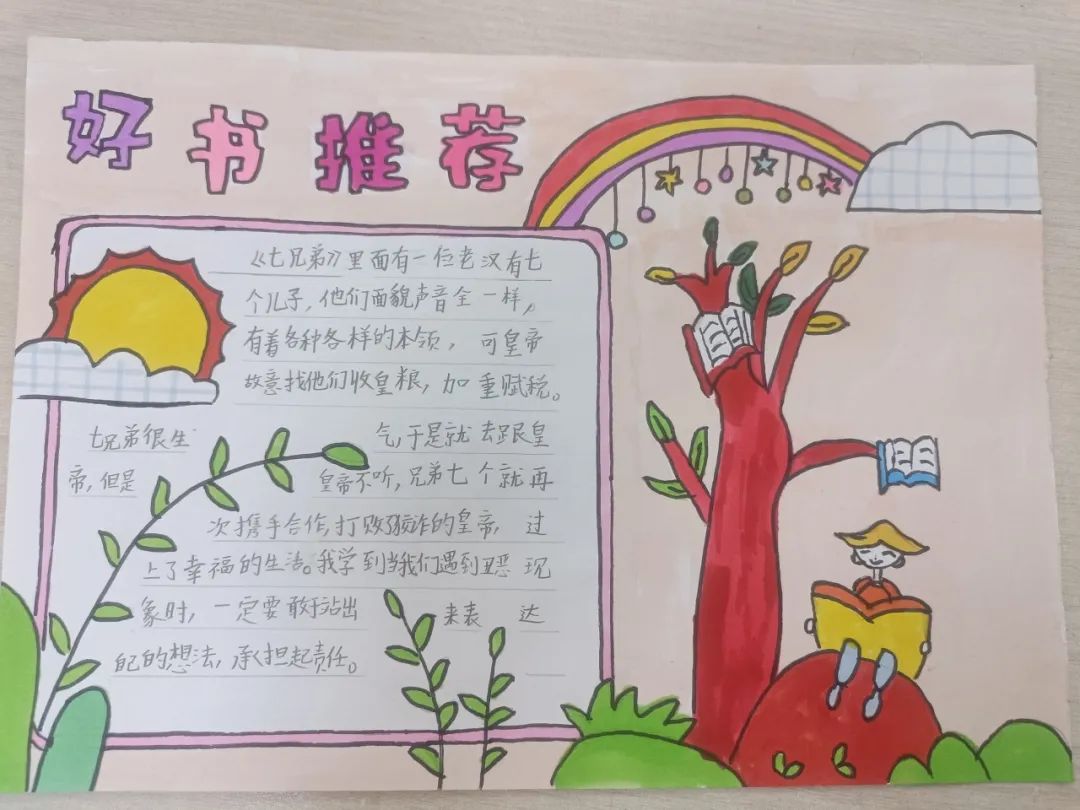 好书推荐
《七兄弟》里面有一位老汉有七
个儿子,他们面貌声音全一样,
有着各种各样的本领,可皇帝
故意找他们收皇粮,加重赋税。
七兄弟很生气,于是就去跟皇
帝,但是皇帝不听,兄弟七个就再
次携手合作,打败了狡诈的皇帝,过
上了幸福的生活。我学到当我们遇到丑恶现
象时,一定要敢于站出来表达
自己的想法,承担起责任。